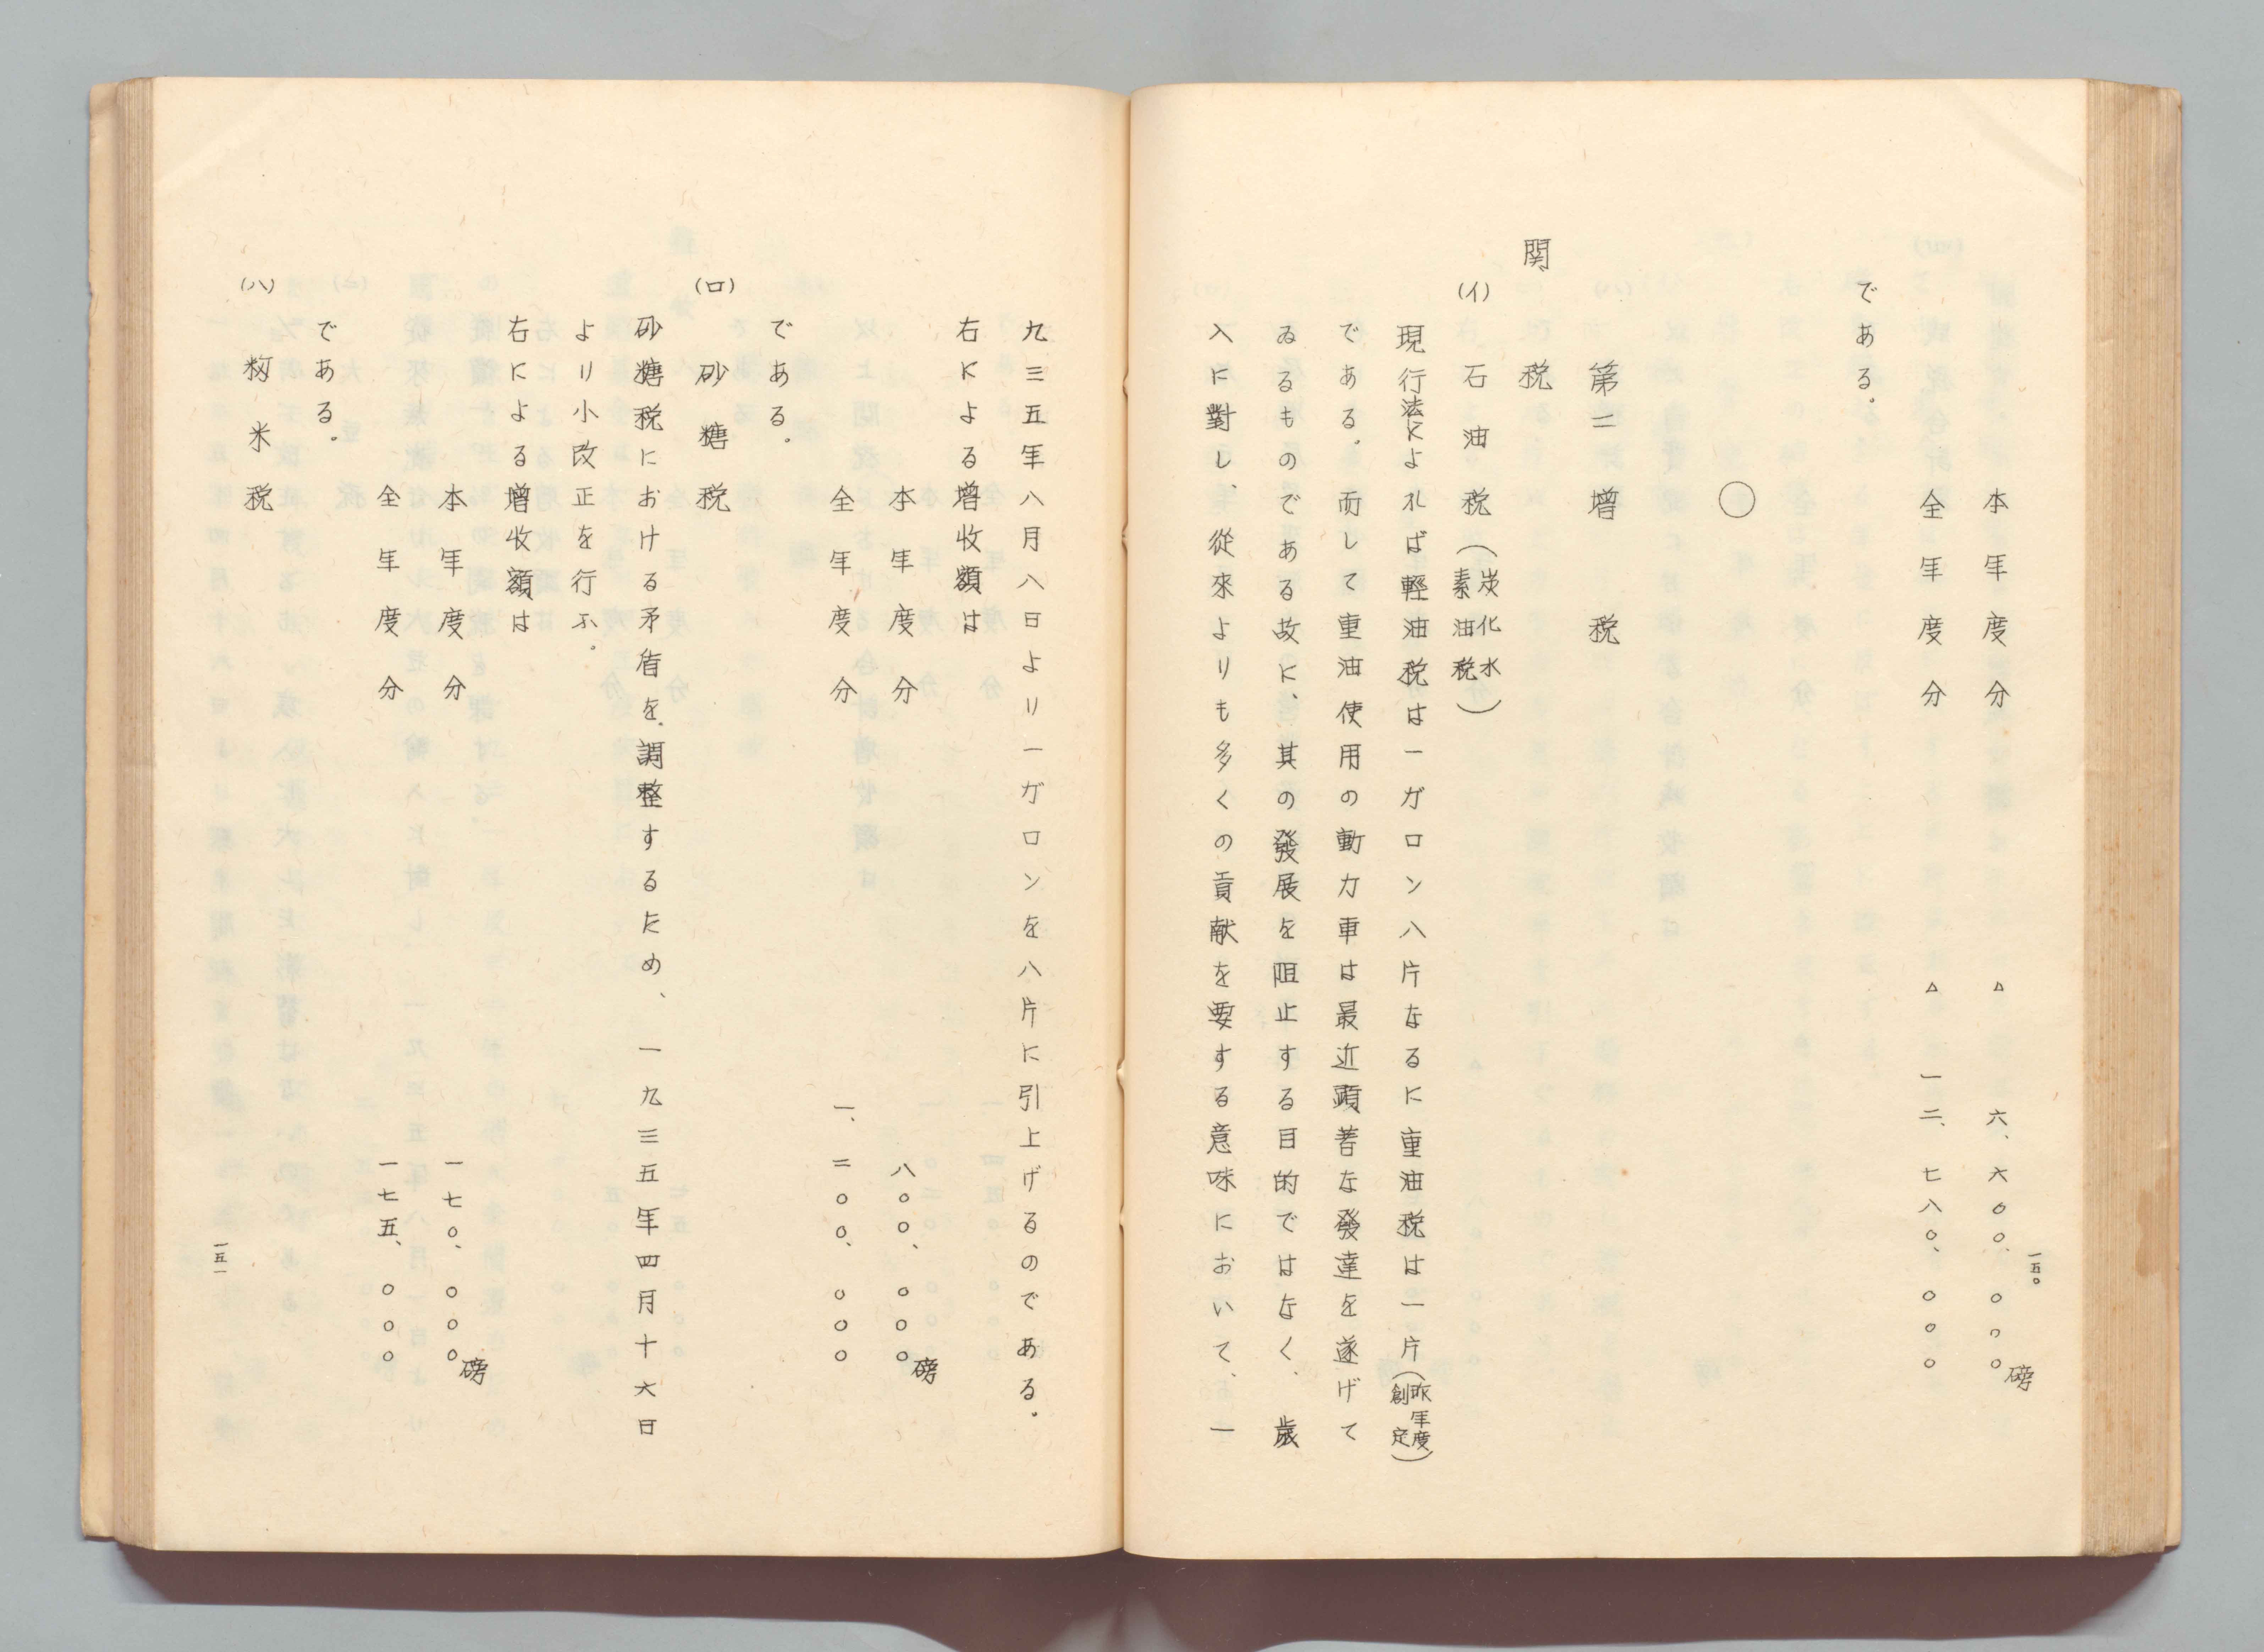 一五〇
本年度分 △ 六、六〇〇、〇〇〇磅
全年度分 △ 一二、七八〇、〇〇〇
である。
○
第二 増税
関税
(イ) 石油税(炭化水素油税)
現行法によれば軽油税は一ガロン八片なるに重油税は一片(昨年度創定)
である。而して重油使用の動力車は最近顕著な發達を遂げて
ゐるものである故に、其の發展を阻止する目的ではなく、歳
入に對し、從來よりも多くの貢献を要する意味において、一
九三五年八月八日より一ガロンを八片に引上げるのである。
右による増收額は
本年度分 八〇〇、〇〇〇磅
全年度分 一、二〇〇、〇〇〇
である。
(ロ) 砂糖税
砂糖税における矛盾を調整するため、一九三五年四月十六日
より小改正を行ふ。
右による増收額は
本年度分 一七〇、〇〇〇磅
全年度分 一七五、〇〇〇
である。
(ハ) 籾米税
一五一